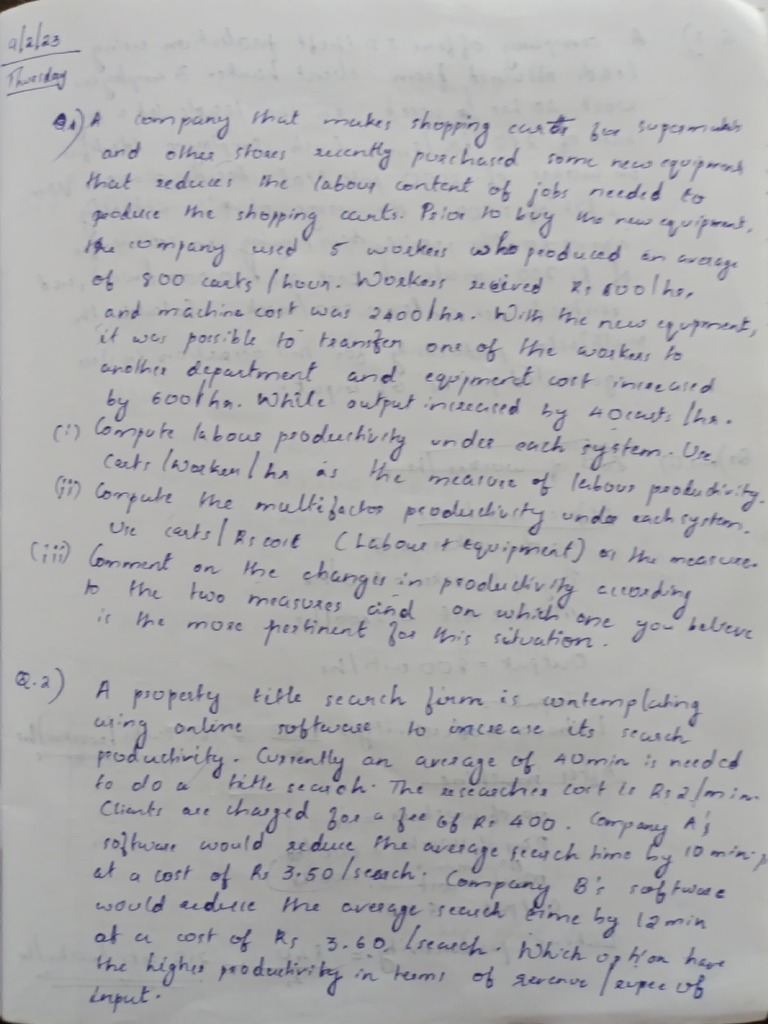 9/2/23
Thursday
Q.1) A company that makes shopping carts for supermarkets
and other stores recently purchased some new equipment
that reduces the labour content of jobs needed to
produce the shopping carts. Prior to buy the new equipment,
the company used 5 workers who produced an average
of 800 carts/hour. Workers received Rs 600/hr,
and machine cost was 2400/hr. With the new equipment,
it was possible to transfer one of the workers to
another department and equipment cost increased
by 600/hr. While output increased by 40 carts/hr.
(i) Compute labour productivity under each system. Use
carts/worker/hr as the measure of labour productivity.
(ii) Compute the multifactor productivity under each system.
Use carts/Rs cost (Labour + Equipment) as the measure.
(iii) Comment on the changes in productivity according
to the two measures and on which one you believe
is the more pertinent for this situation.
Q.2) A property title search firm is contemplating
using online software to increase its search
productivity. Currently an average of 40min is needed
to do a title search. The researcher cost is Rs2/min.
Clients are charged for a fee of Rs 400. Company A's
software would reduce the average search time by 10 min
at a cost of Rs 3.50/search. Company B's software
would reduce the average search time by 12min
at a cost of Rs 3.60/search. Which option have
the higher productivity in terms of revenue/rupee of
input.